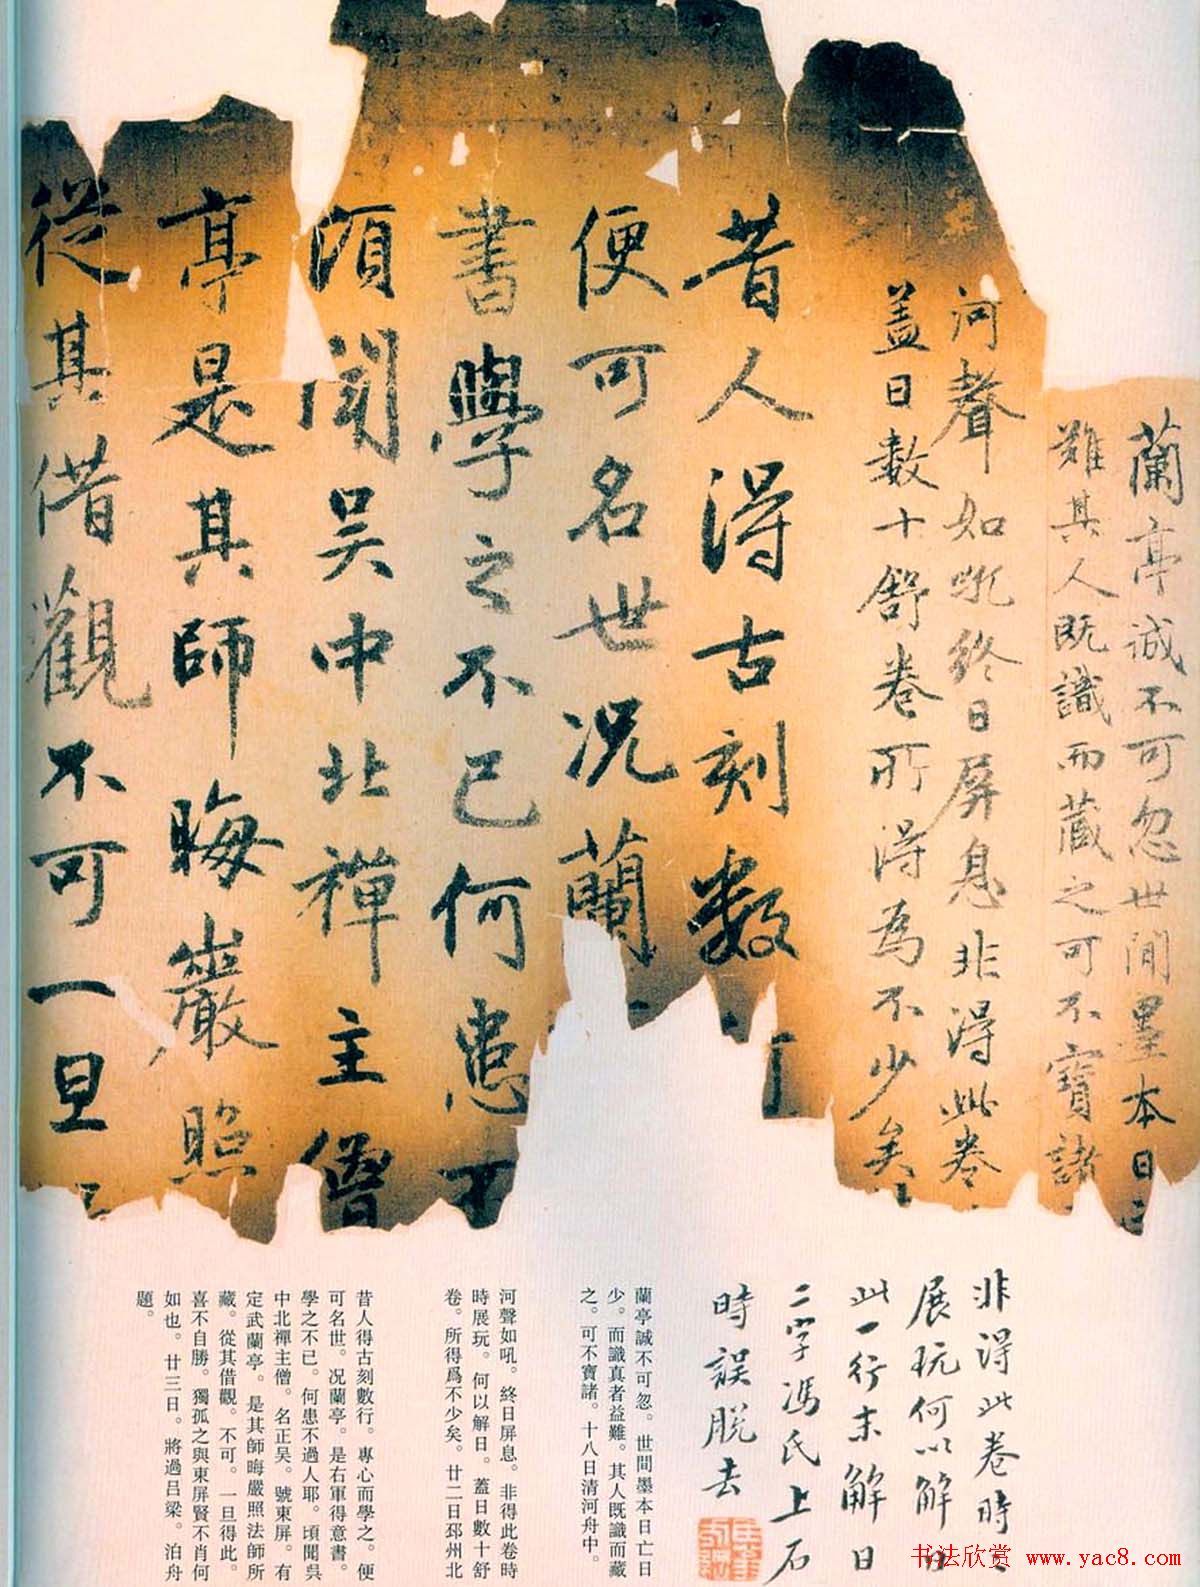 蘭亭誠不可忽世間墨本日亡
難其人既識而藏之可不寶諸
河聲如吼終日屏息非得此卷
蓋日數十舒卷所得為不少矣
昔人得古刻數行
便可名世況蘭
書學之不已何患不
頃聞吳中北禪主僧
亭是其師晦巖照
從其借觀不可一旦
非得此卷時時
展玩何以解日
此一行末解日
二字馮氏上石
時誤脫去
蘭亭誠不可忽。世間墨本日亡日
少。而識真者益難。其人既識而藏
之。可不寶諸。十八日清河舟中。
河聲如吼。終日屏息。非得此卷時
時展玩。何以解日。蓋日數十舒
卷。所得爲不少矣。廿二日邳州北
昔人得古刻數行。專心而學之。便
可名世。況蘭亭。是右軍得意書。
學之不已。何患不過人耶。頃聞吳
中北禪主僧。名正吴。號東屏。有
定武蘭亭。是其師晦嚴照法師所
藏。從其借觀。不可。一旦得此。
喜不自勝。獨孤之與東屏賢不肖何
如也。廿三日。將過吕梁。泊舟
題。
书法欣赏 www.yac8.com